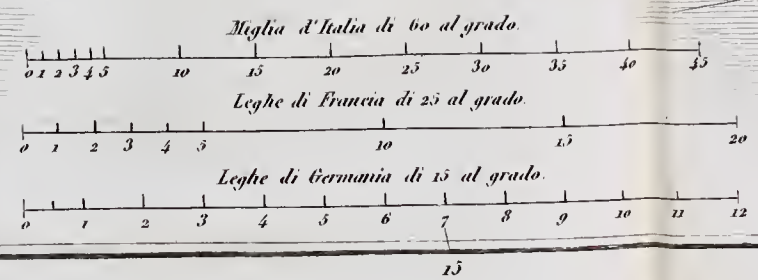 Miglia d'Italia di 60 al grado.
0 1 2 3 4 5 10 15 20 25 30 35 40 45
Leghe di Francia di 25 al grado.
0 1 2 3 4 5 10 15 20
Leghe di Germania di 15 al grado.
0 1 2 3 4 5 6 7 8 9 10 11 12
15